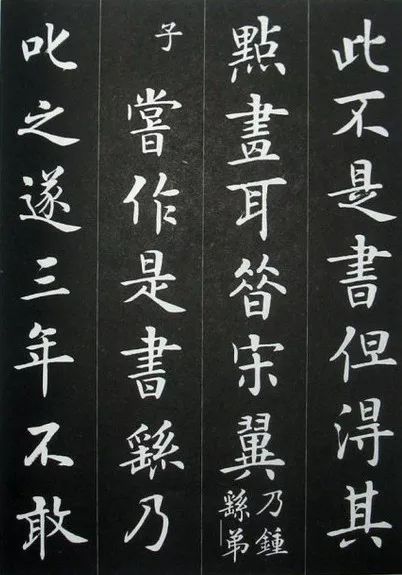 此不是書但淂其
點畫耳昔宋翼乃鍾繇弟
子嘗作是書繇乃
叱之遂三年不敢